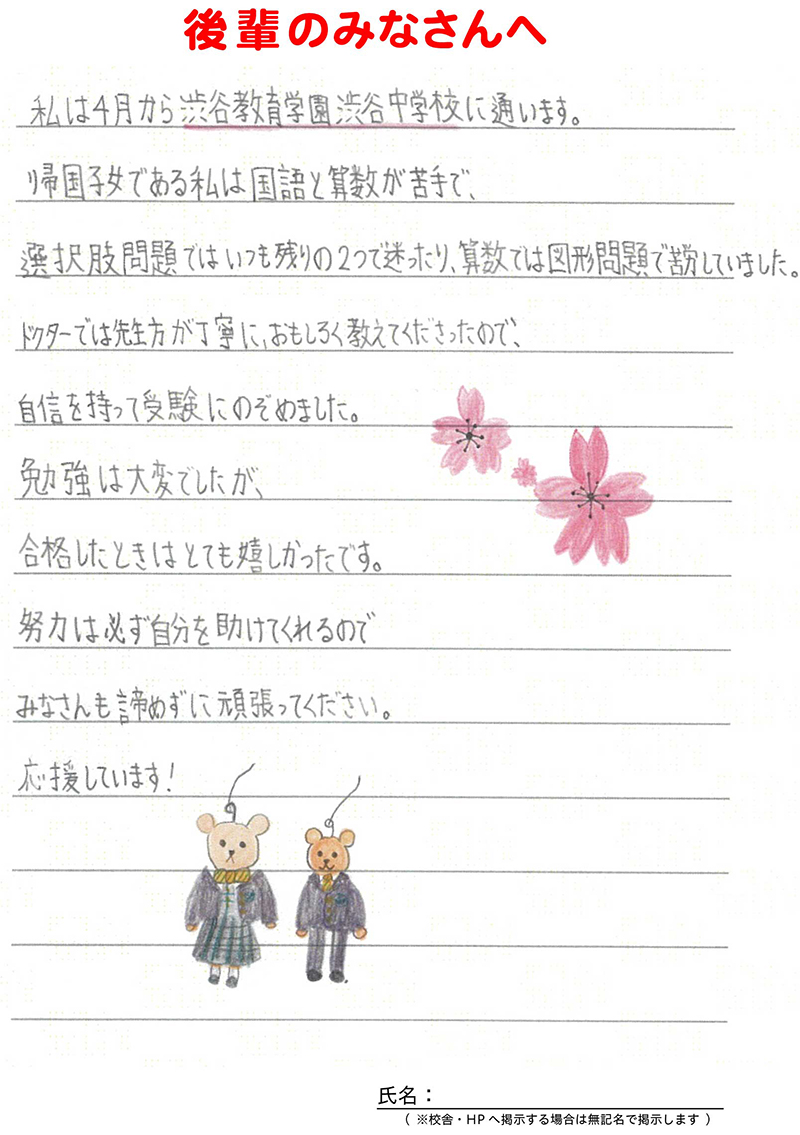 後輩のみなさんへ
私は4月から渋谷教育学園渋谷中学校に通います。
帰国子女である私は国語と算数が苦手で、
選択肢問題ではいつも残りの2つで迷ったり、算数では図形問題で苦労していました。
ドクターでは先生方が丁寧に、おもしろく教えてくださったので、
自信を持って受験にのぞめました。
勉強は大変でしたが、
合格したときはとても嬉しかったです。
努力は必ず自分を助けてくれるので
みなさんも諦めずに頑張ってください。
応援しています!
氏名:
(※校舎・HPへ掲示する場合は無記名で掲示します)